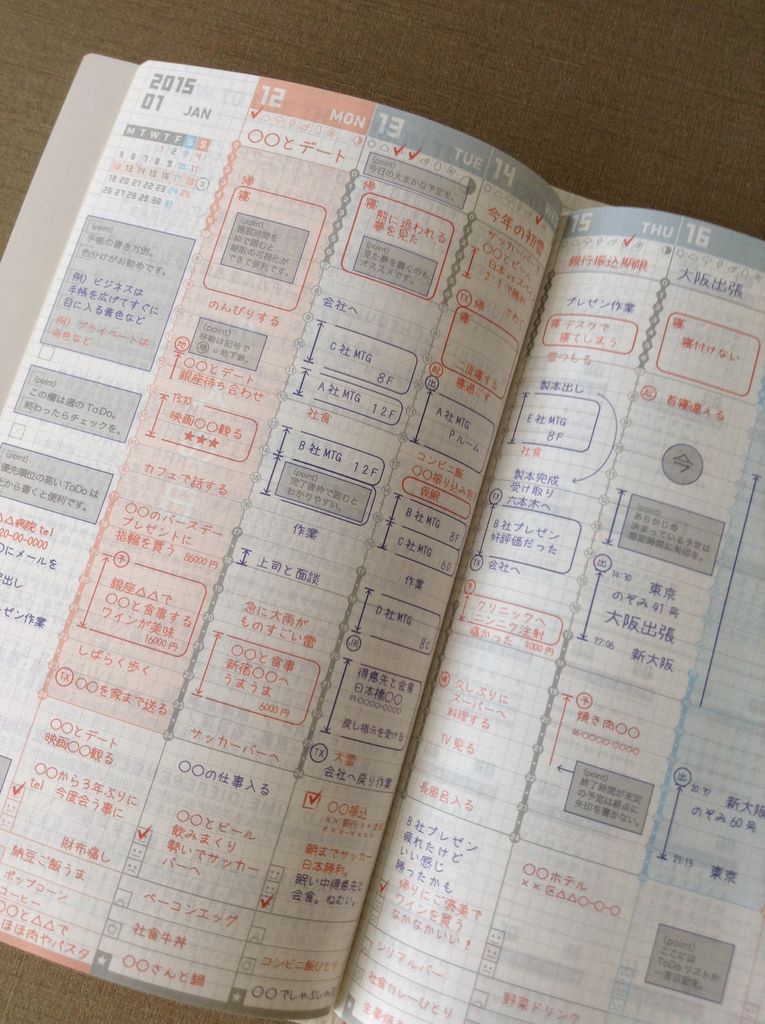 2015
01 JAN
M T W T F S S
1 2 3 4
5 6 7 8 9 10 11
12 13 14 15 16 17 18
19 20 21 22 23 24 25
26 27 28 29 30 31
(point)
手帳の書き方例。
色分けがお勧めです。
例) ビジネスは
手帳を広げてすぐに
目に入る青色など
例) プライベートは
赤色など
(point)
この欄は週の ToDo。
終わったらチェックを。
(point)
優先順位の高い ToDo は
から書くと便利です。
△△病院 tel
にメールを
ゼン作業
12 MON
〇〇とデート
帰
寝
(point)
睡眠時間を
枠で囲むと
睡眠の可視化が
できて便利です。
のんびりする
(point)
移動は記号で
地 = 地下鉄。
地
〇〇とデート
銀座待ち合わせ
13:10
映画〇〇観る
★★★
カフェで話する
〇〇のバースデー
プレゼントに
指輪を買う 86000円
予
銀座△△で
〇〇と食事する
ワインが美味
16000円
しばらく歩く
TX 〇〇を家まで送る
〇〇とデート
映画〇〇観る
〇〇から3年ぶりに
tel 今度会う事に
財布痛し
納豆ご飯うま
ポップコーン
コーヒー
〇〇と△△で
ほほ肉やパスタ
13 TUE
(point)
今日の大まかな予定を。
帰
寝
熊に追われる
夢を見た
(point)
見た夢を書くのも
オススメです。
会社へ
C社MTG
8F
A社MTG
12F
社食
B社MTG
12F
(point)
完了後枠で囲むと
わかりやすい。
作業
上司と面談
急に大雨が
ものすごい雷
〇〇と食事
新宿〇〇へ
うまうま
6000円
サッカーバーへ
〇〇の仕事入る
〇〇とビール
飲みまくり
勢いでサッカー
バーへ
ベーコンエッグ
社食牛丼
〇〇さんと鍋
14 WED
今年の初雪
サッカーバーへ
〇〇とビール
日本とスイス
2-1で勝利
TX 帰
寝
二度寝する
寝過ごす
出
A社MTG
Pルーム
コンビニ飯
〇〇振り込み完了
仮眠
B社MTG
8F
C社MTG
6D
作業
D社MTG
8C
JR
得意先と会食
日本橋〇〇
戻し指示を受ける
TX
大雪
会社へ戻り作業
〇〇振込
朝までサッカー
日本勝利。
眠い中得意先と
会食。ねむい。
コンビニ飯ひとり
〇〇でしゃぶしゃぶ
15 THU
銀行振込期限
プレゼン作業
寝 デスクで
寝てしまう
雪つもる
製本出し
E社MTG
8F
社食
製本完成
受け取り
TX 六本木へ
B社プレゼン
好評価だった
TX 会社へ
クリニックへ
ニンニク注射
痛かった 4000円
久しぶりに
スーパーへ
料理する
TV見る
長風呂入る
B社プレゼン
疲れたけど
いい感じ
勝ったかも
帰りにご褒美で
ワインを買う
なかなかいい!
シリアルバー
社食カレーひとり
16
大阪出張
寝
寝付けない
首寝違える
今
(point)
あらかじめ
決まっている予定は
想定時間に矢印を。
出
14:30 東京
のぞみ 41号
大阪出張
17:06 新大阪
予
焼き肉〇〇
(point)
終了時間が未定
の予定は終点に
矢印を書かない。
〇〇ホテル
××区△△〇-〇-〇
野菜ドリンク
出
20:37 新大阪
のぞみ 60号
23:13 東京
(point)
ここには
ToDoリストか
一言日記を。